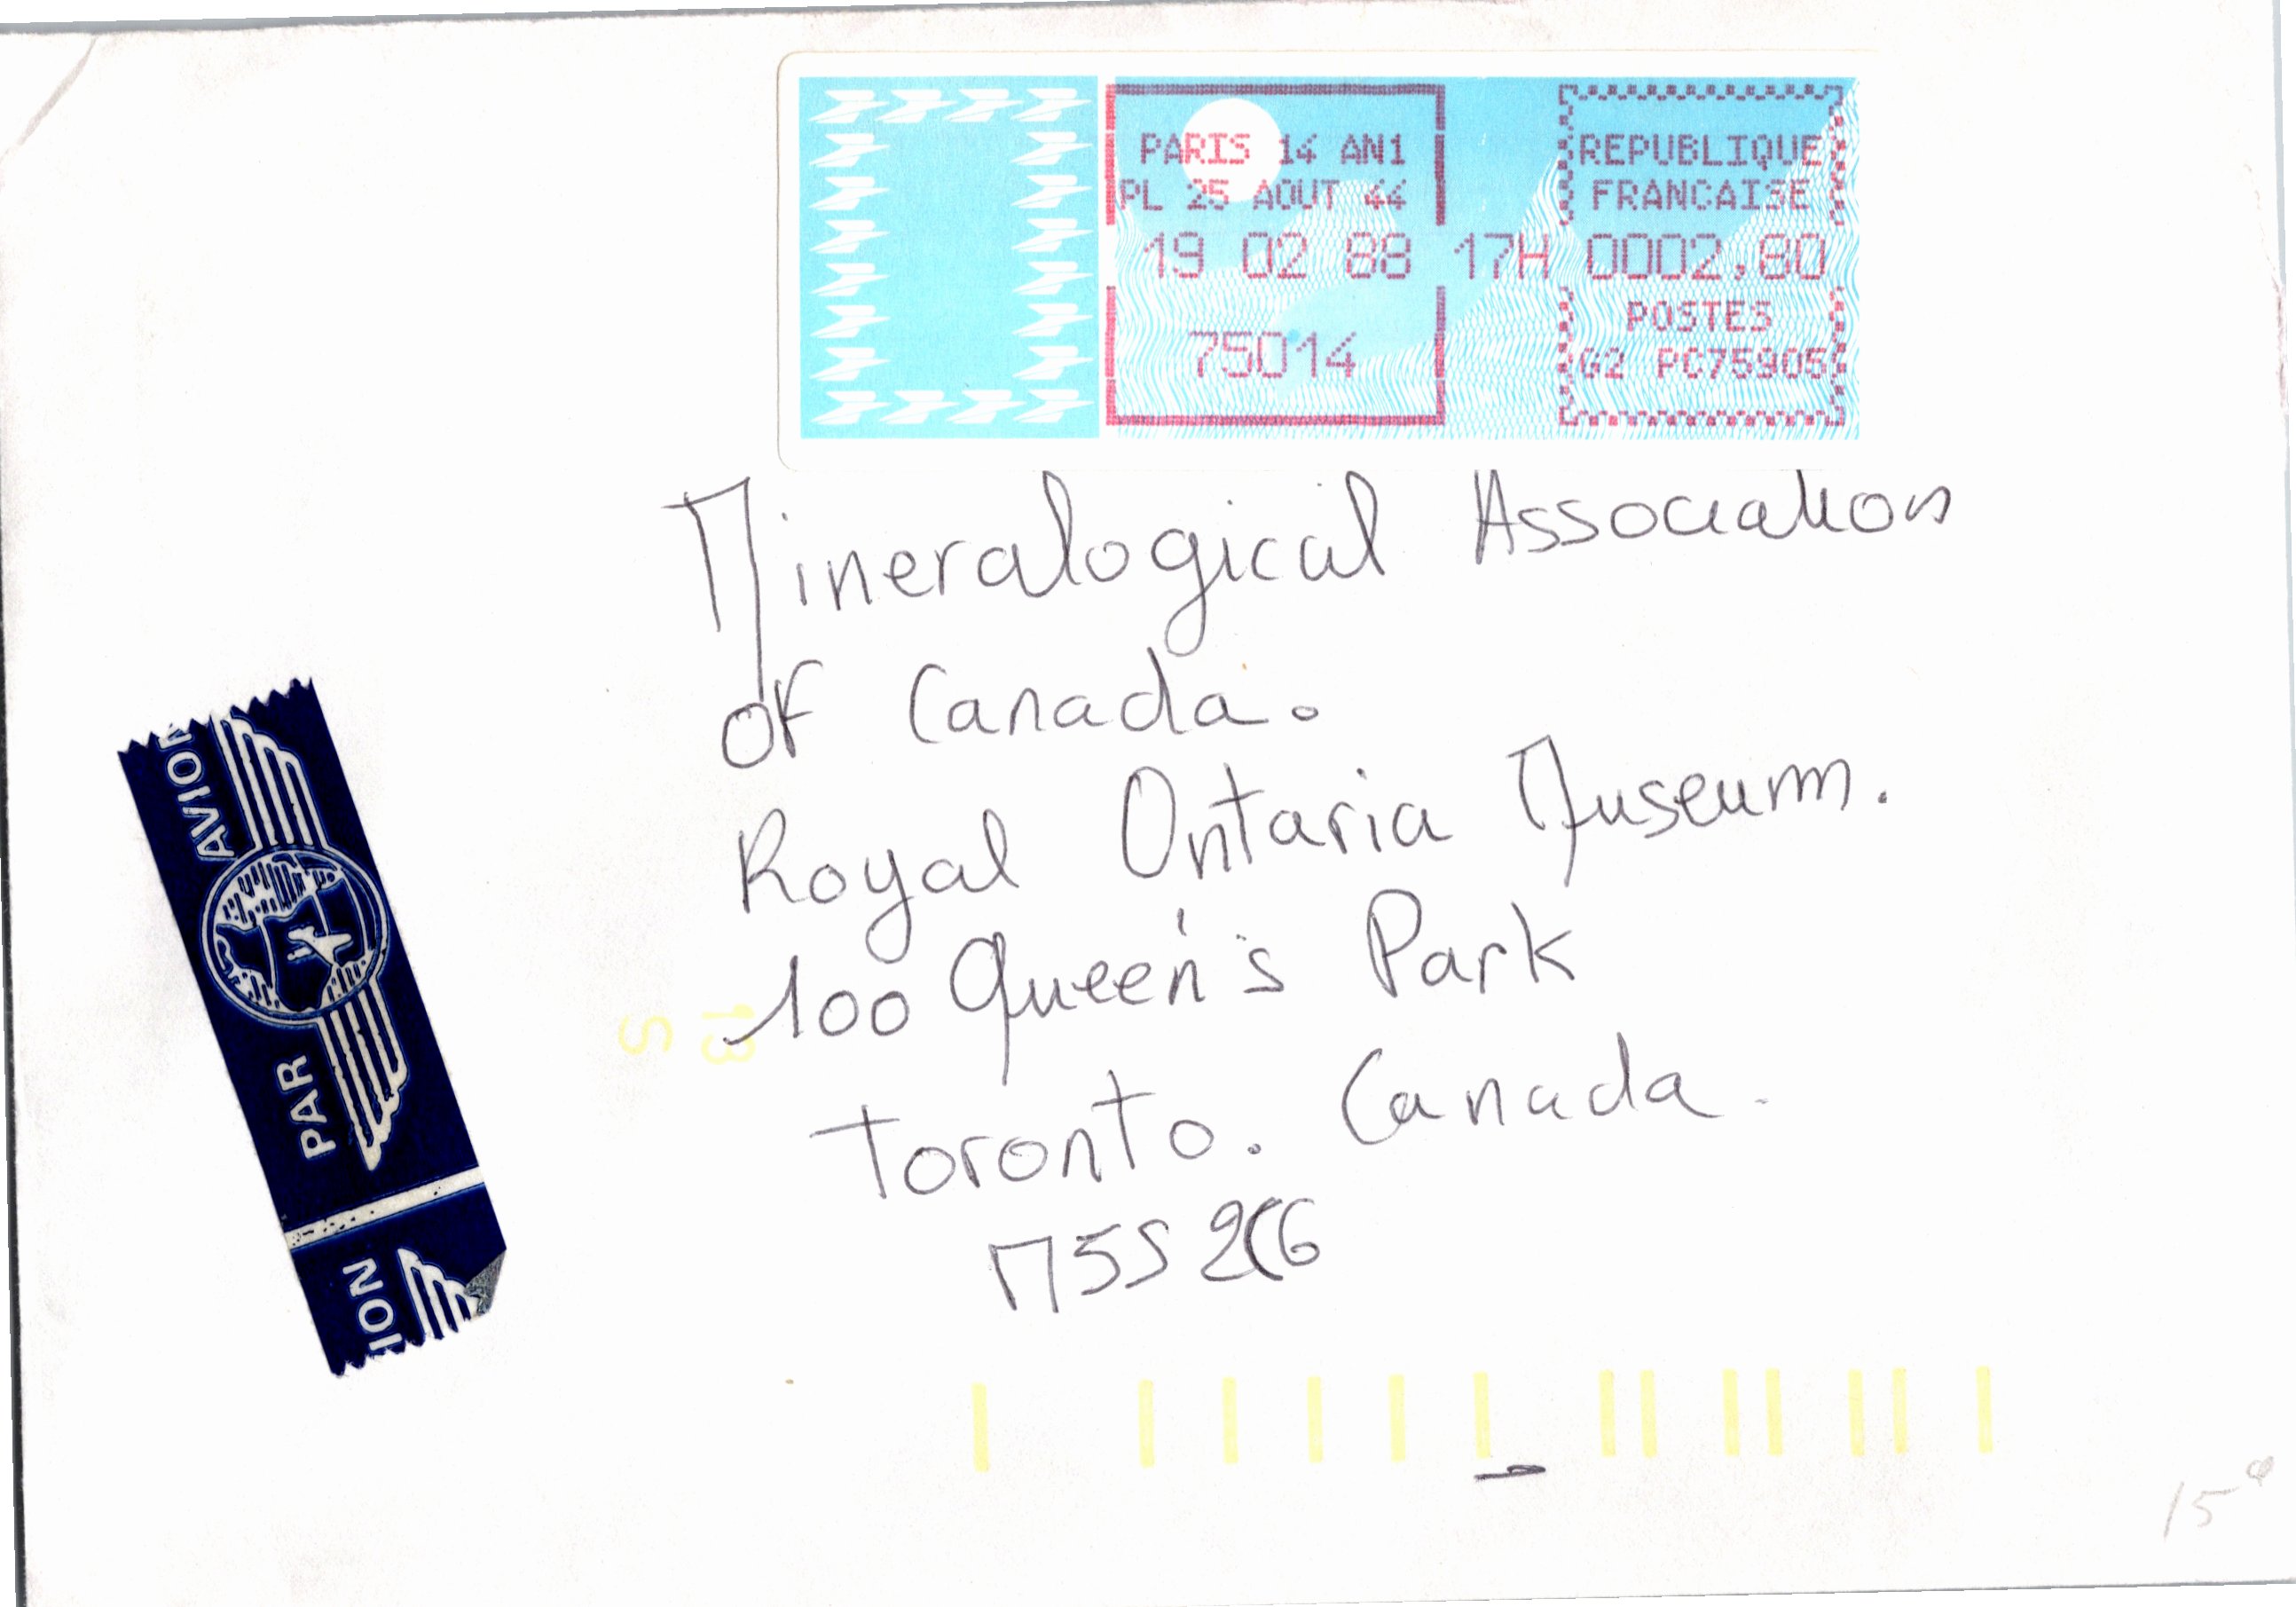 PARIS 14 AN1
PL 25 AOUT 44
19 02 88 17H 0002,80
75014
REPUBLIQUE
FRANCAISE
POSTES
G2 PC75905
Mineralogical Association
of Canada.
Royal Ontaria Museum.
100 Queen's Park
Toronto. Canada.
M5S 2C6
PAR AVION
ION
S 13
15